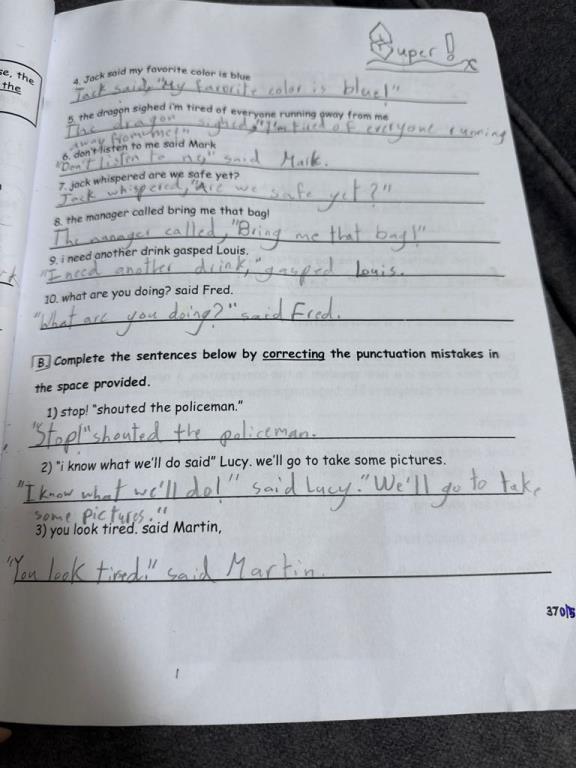 Super!
se, the
the
4. Jack said my favorite color is blue
Jack said, "My favorite color is blue!"
5. the dragon sighed i'm tired of everyone running away from me
The dragon sighed, "I'm tired of everyone running
away from me!"
6. don't listen to me said Mark
"Don't listen to me," said Mark.
7. jack whispered are we safe yet?
Jack whispered, "Are we safe yet?"
8. the manager called bring me that bag!
The manager called, "Bring me that bag!"
9. i need another drink gasped Louis.
"I need another drink," gasped Louis.
10. what are you doing? said Fred.
"What are you doing?" said Fred.
B. Complete the sentences below by correcting the punctuation mistakes in
the space provided.
1) stop! "shouted the policeman."
"Stop!" shouted the policeman.
2) "i know what we'll do said" Lucy. we'll go to take some pictures.
"I know what we'll do!" said Lucy. "We'll go to take
some pictures."
3) you look tired. said Martin,
"You look tired." said Martin.
370/5